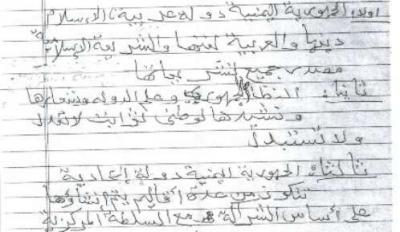 أولاً: الجمهورية اليمنية دولة عربية، الإسلام
دينها والعربية لغتها والشريعة الإسلامية
مصدر جميع التشريعات
ثانياً: النظام الجمهوري وعلم الدولة وشعارها
ونشيدها الوطني ثوابت لا تعدل
ولا تستبدل
ثالثاً: الجمهورية اليمنية دولة إتحادية
تتكون من عدة أقاليم يتم إنشاؤها
على أساس الشراكة مع السلطة المركزية